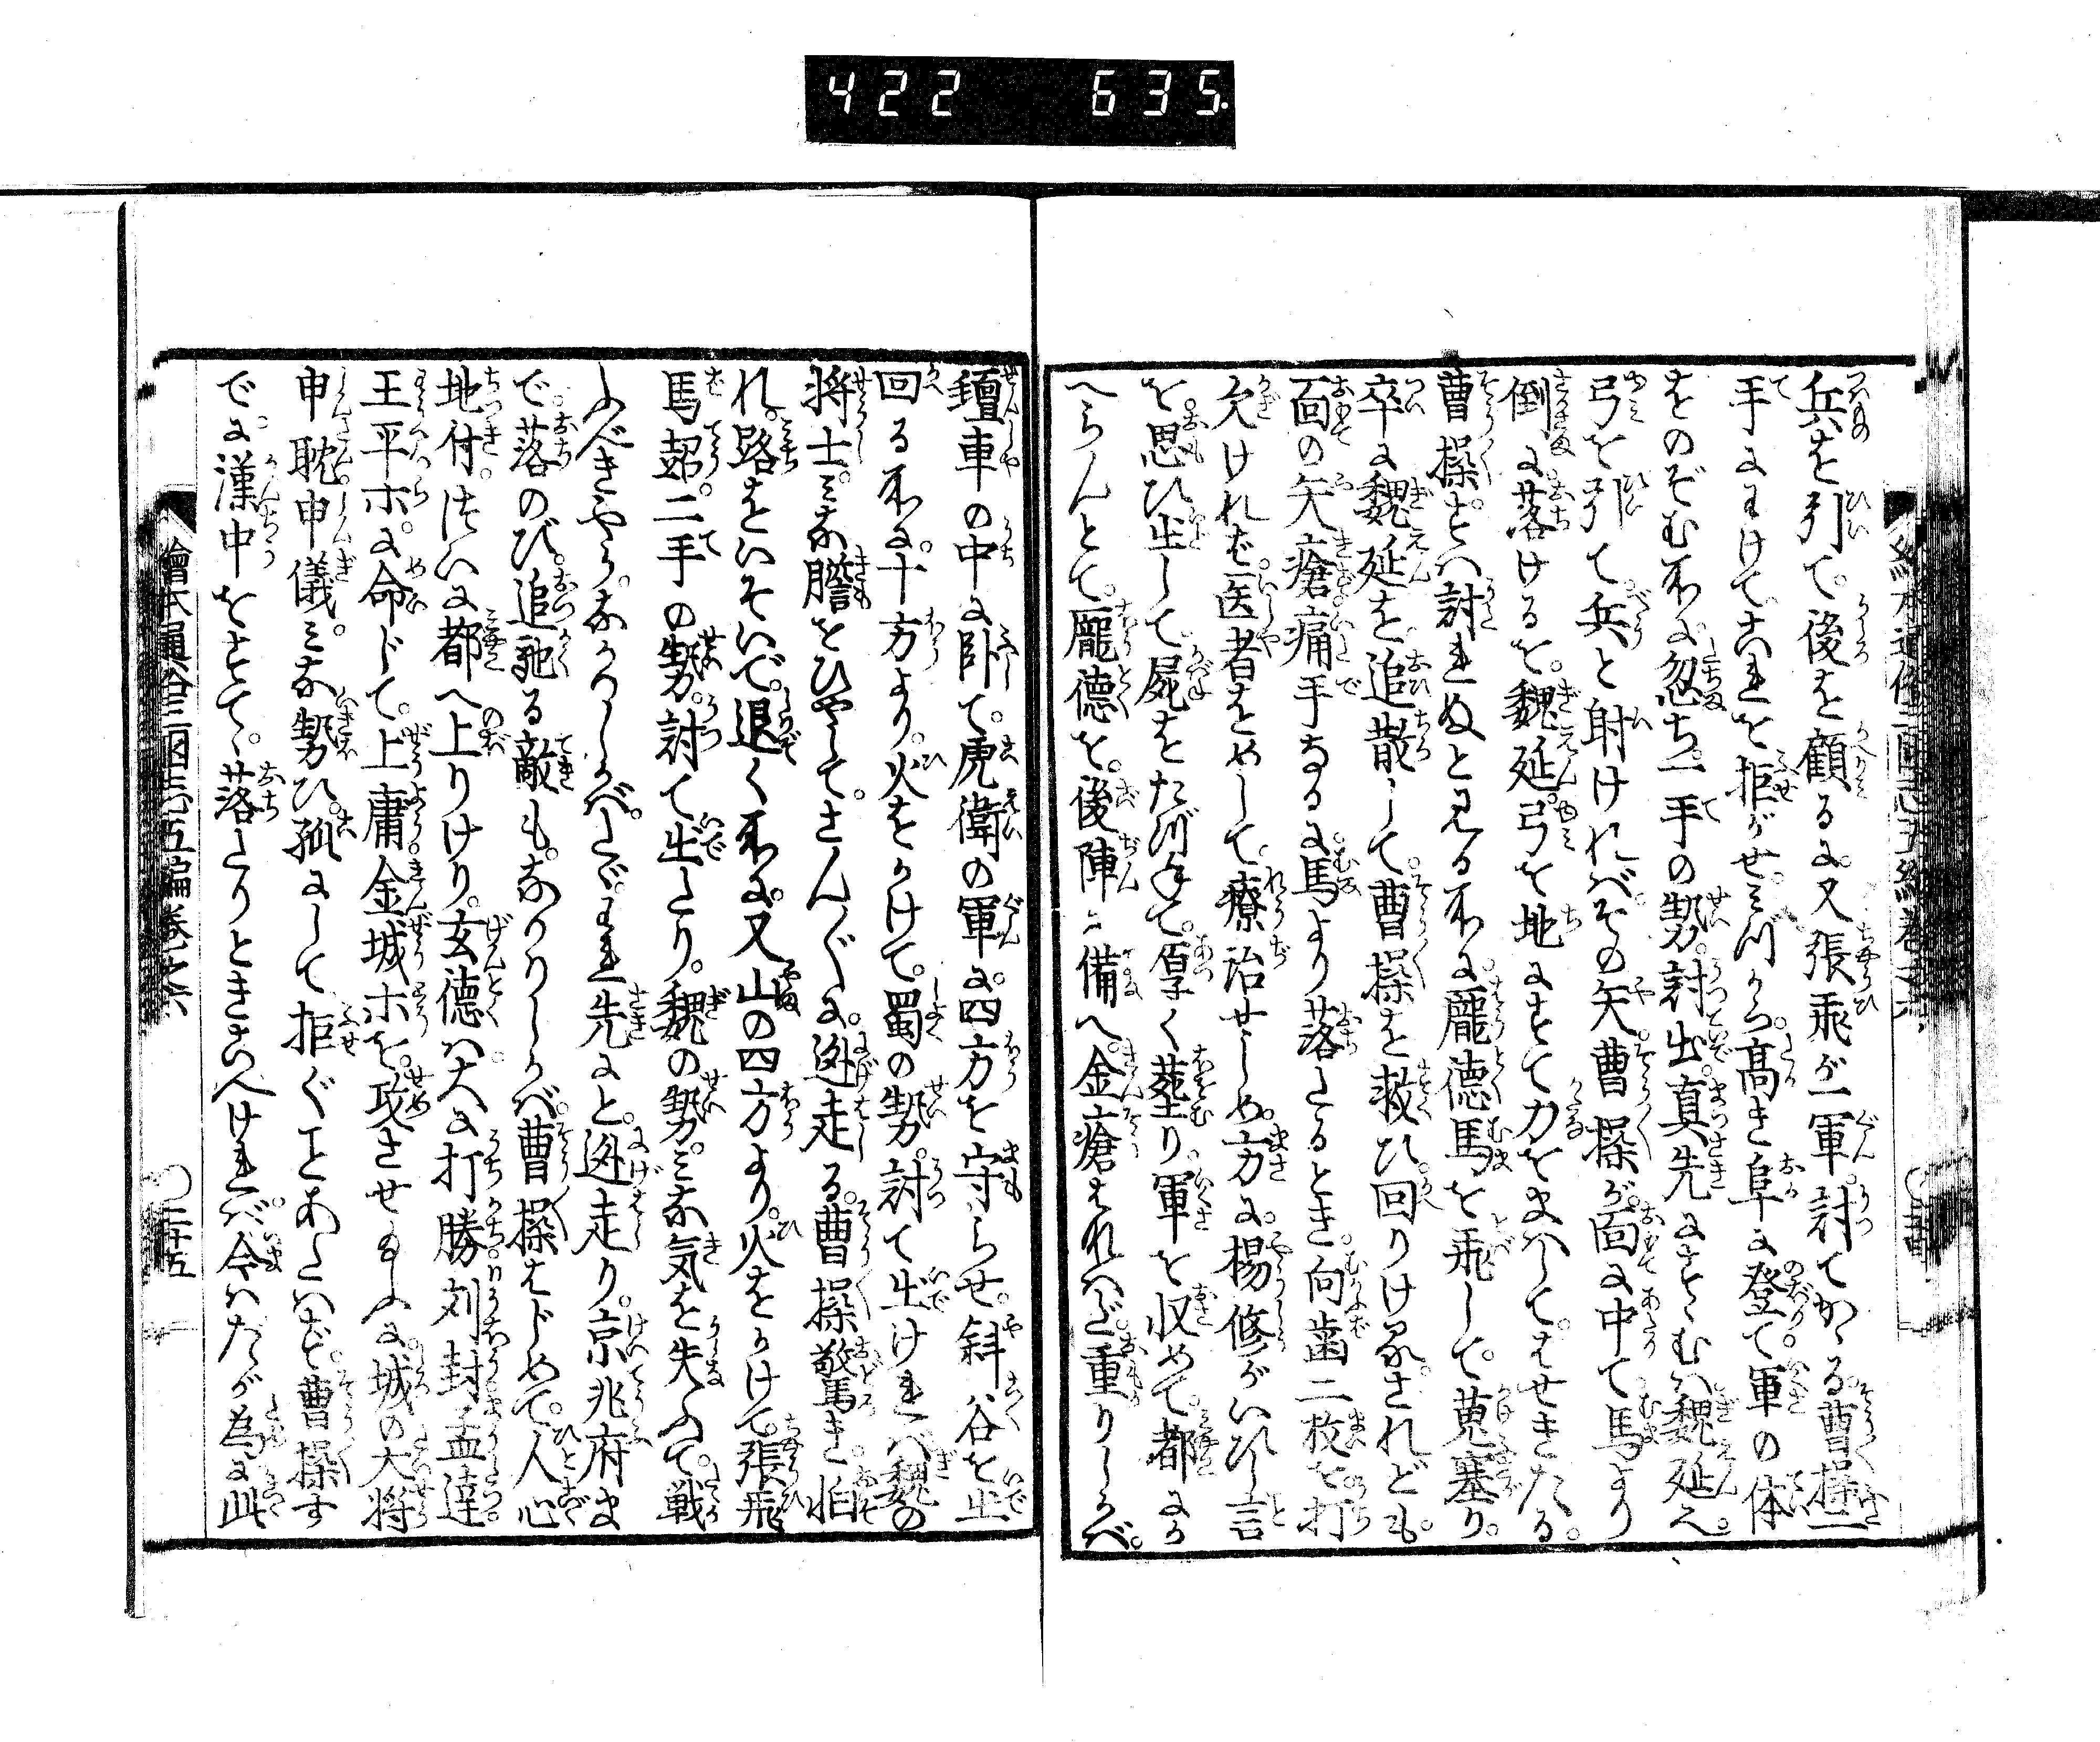 422 635
兵を引て。後を顧るに。又張飛が一軍。討てかゝる。曹操一
手にわけてこれを拒がせ。みづから。高き阜に登て。軍の体
をのぞむ所に。忽ち一手の勢。討出。真先にすゝむハ魏延也。
弓を引て。兵と射けれバ。その矢。曹操が。面に中て。馬より
倒に落けるを。魏延。弓を地にすて。刀をまハして。はせきたる。
曹操すでに討れぬと見る所に。龐徳馬を飛して。蒐塞り。
卒に魏延を追散して。曹操を救ひ回りける。されども。
面の矢瘡痛手なるに。馬より落たるとき。向歯二枚を打
欠けれバ。医者をめして。療治せしめ。方に。楊修がいひし言
を。思ひ出して。屍をたづねて。厚く葬り。軍を収めて。都にか
へらんとて。龐徳を。後陣に備へ。金瘡はなハだ重りしかバ。
氈車の中に臥て。虎衛の軍に。四方を守らせ。斜谷を出
回る所に。十方より。火をかけて。蜀の勢。討て出けれバ。魏の
将士。みな膽をひやして。さんざんに。逃走る。曹操驚き。怕
れ。路をいそいで。退く所に。又山の四方より。火をかけて。張飛
馬超。二手の勢。討て出たり。魏の勢。みな気を失ふて。戦
ふべきやう。なかりしかバ。たゞ。われ先にと。逃走り。京兆府ま
で。落のび。追馳る敵も。なかりしかバ。曹操はじめて。人心
地付。つひに都へ上りけり。玄徳ハ。大に打勝。刘封。孟達。
王平ホ。に命じて。上庸。金城ホを。攻させ給ふに。城の大将
申耽。申儀。みな勢ひ。孤にして。拒ぐことあたハず。曹操す
でに。漢中をすて。落たりときこへけれバ。今ハたが為に此
繪本通俗三国志五編巻之六